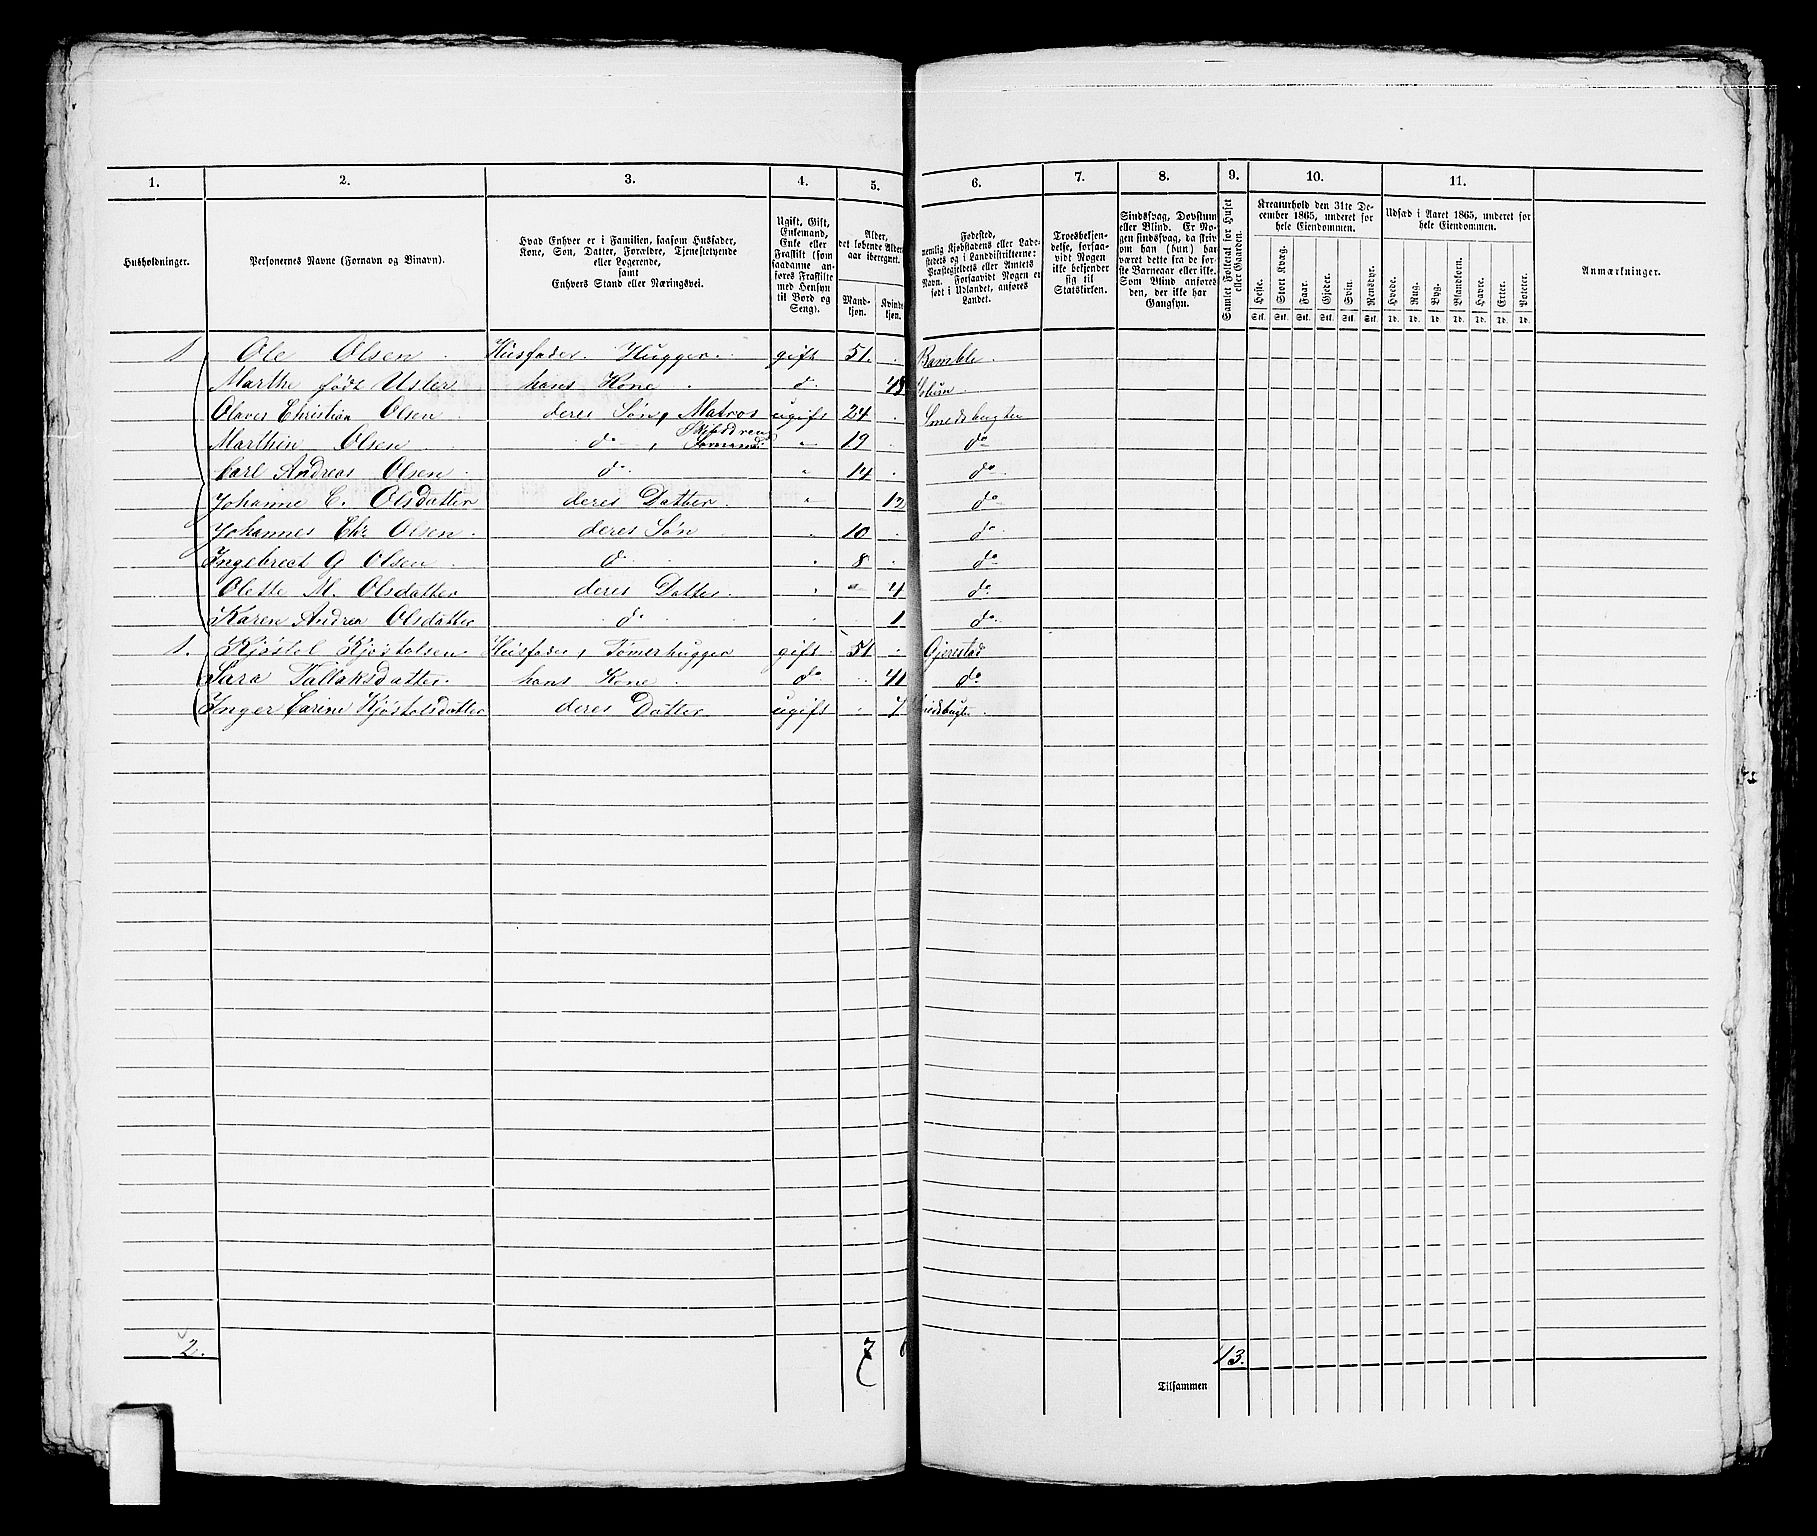 1. 2. 3. 4. 5. 6. 7. 8. 9. 10. 11.
Husholdninger.
Personernes Navne (Fornavn og Binavn).
Hvad Enhver er i Familien, saasom Husfader,
Kone, Søn, Datter, Forældre, Tjenestetyende
eller Logerende,
samt
Enhvers Stand eller Næringsvei.
Ugift, Gift,
Enkemand,
Enke eller
Fraskilt (som
saadanne an-
føres Fraskilte
med Hensyn
til Bord og
Seng).
Alder,
det løbende Alders-
aar iberegnet.
Mand-
kjøn.
Kvinde-
kjøn.
Fødested,
nemlig Kjøbstadens eller Lade-
stedets og i Landdistrikterne:
Præstegjeldets eller Amtets
Navn. Forsaavidt Nogen er
født i Udlandet, anføres
Landet.
Troesbekjen-
delse, forsaa-
vidt Nogen
ikke bekjender
sig til
Statskirken.
Sindssvag, Døvstum
eller Blind. Er No-
gen sindssvag, da skriv
om han (hun) har
været dette fra de før-
ste Barneaar eller ikke.
Som Blind anføres
den, der ikke har
Gangsyn.
Samlet Folketal for Huset
eller Gaarden.
Kreaturhold den 31te De-
cember 1865, underet for
hele Eiendommen.
Heste. Stort Kvæg. Faar. Gjeder. Svin. Rensdyr.
Stk. Stk. Stk. Stk. Stk. Stk.
Udsæd i Aaret 1865, underet for
hele Eiendommen.
Hvede. Rug. Byg. Blandkorn. Havre. Erter. Poteter.
Td. Td. Td. Td. Td. Td. Td.
Anmærkninger.
1 Ole Olsen Husfader. Hugger. gift 51. Bamble
Marthe født hans Kone do
Olaves Christian Olsen deres Søn, Matros ugift 24 Smedsbugten
Marthin Olsen do, Sømand " 19 do
Carl Andreas Olsen do " 14 do
Johanne C. Olsdatter deres Datter " 12 do
Johannes Chr Olsen deres Søn " 10 do
Ingebrect G Olsen do " 8 do
Olette M. Olsdatter deres Datter " 4 do
Karen Andrea Olsdatter do 1 do
1. Kjøstel Kjøstolsen Husfader, Tømerhugger gift 51 Gjerestad
Sara Tallaksdatter hans Kone do 41 do
Inger Carine Kjøstolsdatter deres Datter ugift 7 Smedsbugten
2. 7 13.
Tilsammen